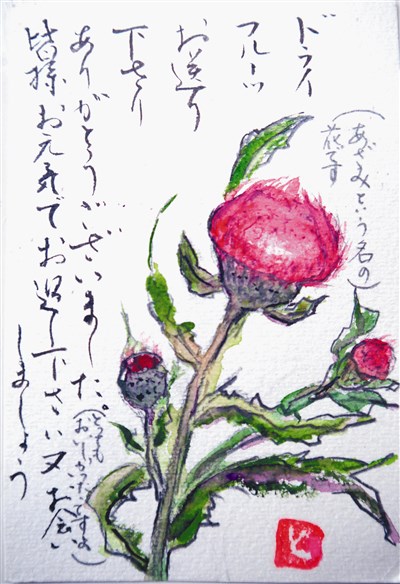 ドライ
フルーツ
お送り
下さり
ありがとうございました。
(とても
おいしかったですよ)
皆様お元気でお過し下さい又お会い
しましょう
(あざみという名の
花です)
と